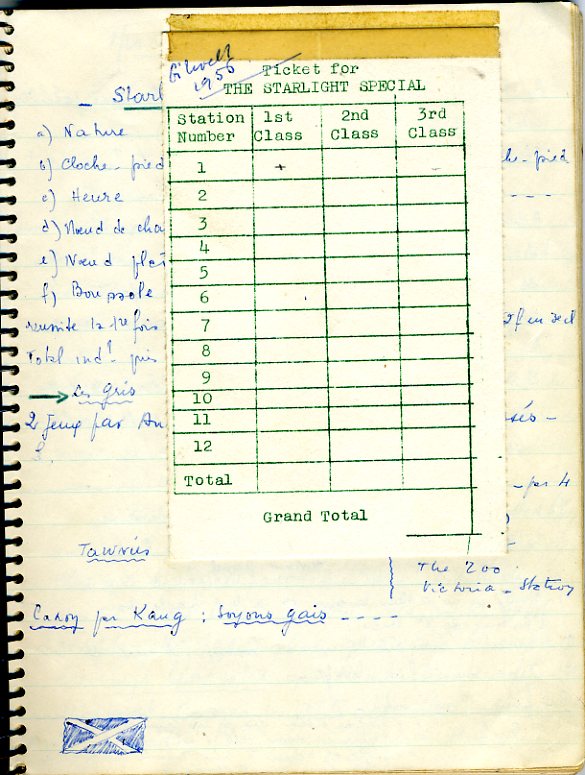 Gilwell
1956
Ticket for
THE STARLIGHT SPECIAL
Station Number 1st Class 2nd Class 3rd Class
1 +
2
3
4
5
6
7
8
9
10
11
12
Total
Grand Total
_ Starl
a) Nature
b) Cloche-pied
c) Heure
d) Nœud de cha
e) Nœud plat
f) Boussole
reussite la 1re fois
Total indl
Les gris
2 Jeux par An
- par 4
Tawnies
The Zoo
Victoria-Station
Canon par Kang : Soyons gais ----